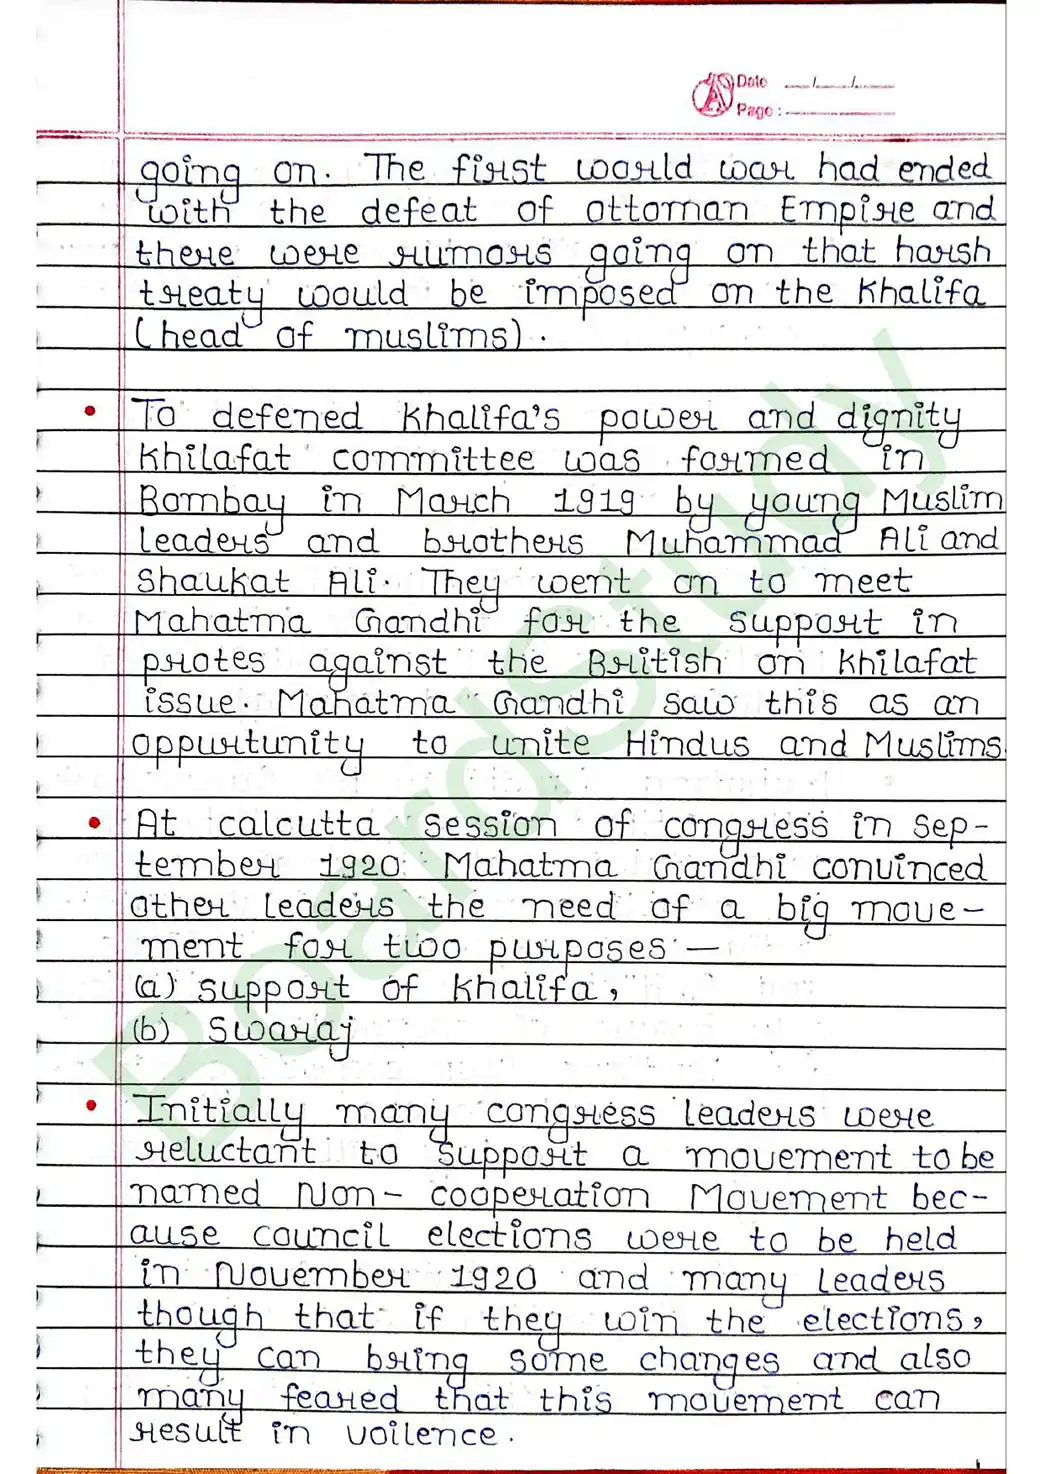 Date __/__/____
Page : ________
going on. The first woorld war had ended
with the defeat of ottoman Empire and
there were rumors going on that harsh
treaty would be imposed on the Khalifa
(head of muslims).
• To defened Khalifa's power and dignity
Khilafat committee was formed in
Bombay in March 1919 by young Muslim
leaders and brothers Muhammad Ali and
Shaukat Ali. They went on to meet
Mahatma Gandhi for the support in
protes against the British on Khilafat
issue. Mahatma Gandhi saw this as an
oppurtunity to unite Hindus and Muslims.
• At calcutta session of congress in Sep-
tember 1920 Mahatma Gandhi convinced
other leaders the need of a big move-
ment for two purposes —
(a) support of Khalifa,
(b) Swaraj
• Initially many congress leaders were
reluctant to support a movement to be
named Non-cooperation Movement bec-
ause council elections were to be held
in November 1920 and many leaders
though that if they win the elections,
they can bring some changes and also
many feared that this movement can
result in voilence.
BoardStudy